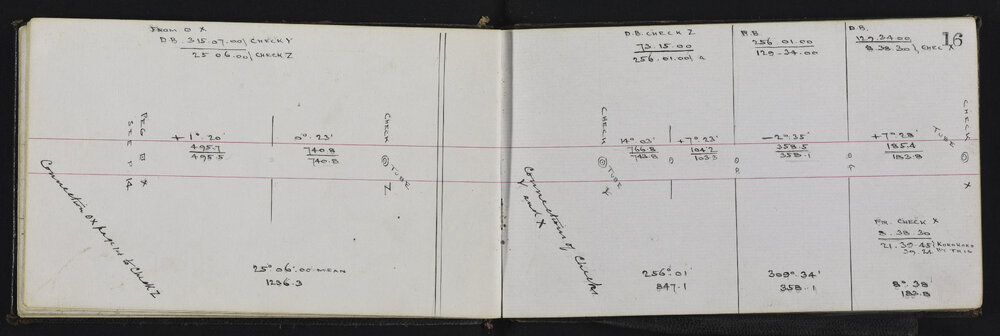 FROM O X
D.B. 315.07.00 / CHECK Y
25 06.00 / CHECK Z
PEG B X
SEE P 14
+1°. 20'
495.7
495.5
0°. 23'
740.8
740.8
CHECK
TUBE
Z
Connection OX page 14 to Check Z
25° 06'. 00 MEAN
1236.3
16
D.B. CHECK Z
73.15.00
256.01.00 / a
CHECK
TUBE
Y
14° 03'
766.8
743.8
+7° 23'
104.2
103.3
Connections of Checks
Y and X
256°. 01'
847.1
B.B.
256 01.00
129.34.00
-2°. 35'
358.5
358.1
309°. 34'
358.1
D.B.
129.34.00
8.38.30 / CHECK X
+7° 28'
185.4
183.8
CHECK
TUBE
X
FR. CHECK X
8.38.30
21.39.45 / KOROKORO
39.22 BY TRIG
8° 38'
183.8